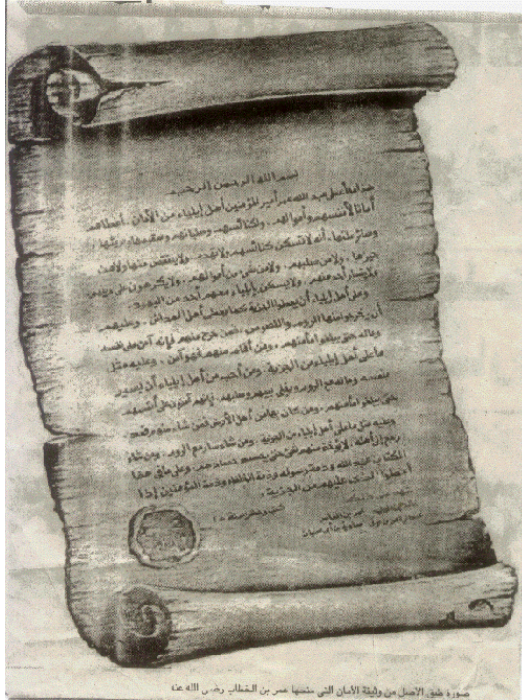 بسم الله الرحمن الرحيم
هذا ما أعطى عبد الله عمر أمير المؤمنين أهل إيلياء من الأمان . أعطاهم
أمانا لأنفسهم وأموالهم . ولكنائسهم وصلبانهم وسقيمها وبريئها
وسائر ملتها . أنه لا تسكن كنائسهم ولا تهدم . ولا ينتقص منها ولا من
حيزها . ولا من صليبهم . ولا من شئ من أموالهم . ولا يكرهون على دينهم
ولا يضار أحد منهم . ولا يسكن بإيلياء معهم أحد من اليهود .
وعلى أهل إيلياء أن يعطوا الجزية كما يعطي أهل المدائن . وعليهم
أن يخرجوا منها الروم واللصوص . فمن خرج منهم فإنه آمن على نفسه
وماله حتى يبلغوا مأمنهم . ومن أقام منهم فهو آمن . وعليه مثل
ما على أهل إيلياء من الجزية . ومن أحب من أهل إيلياء أن يسير
بنفسه وماله مع الروم ويخلي بيعهم وصلبهم . فإنهم آمنون على أنفسهم
حتى يبلغوا مأمنهم . ومن كان بها من أهل الأرض فمن شاء منهم قعد .
وعليه مثل ما على أهل إيلياء من الجزية . ومن شاء سار مع الروم . ومن شاء
رجع إلى أهله . لا يؤخذ منهم شئ حتى يحصد حصادهم . وعلى ما في هذا
الكتاب عهد الله وذمة رسوله وذمة الخلفاء وذمة المؤمنين إذا
أعطوا الذي عليهم من الجزية .
كتب وحضر سنة ١٥
عمرو بن العاص
عبد الرحمن بن عوف معاوية بن أبي سفيان
صورة طبق الأصل من وثيقة الأمان التي منحها عمر بن الخطاب رضي الله عنه